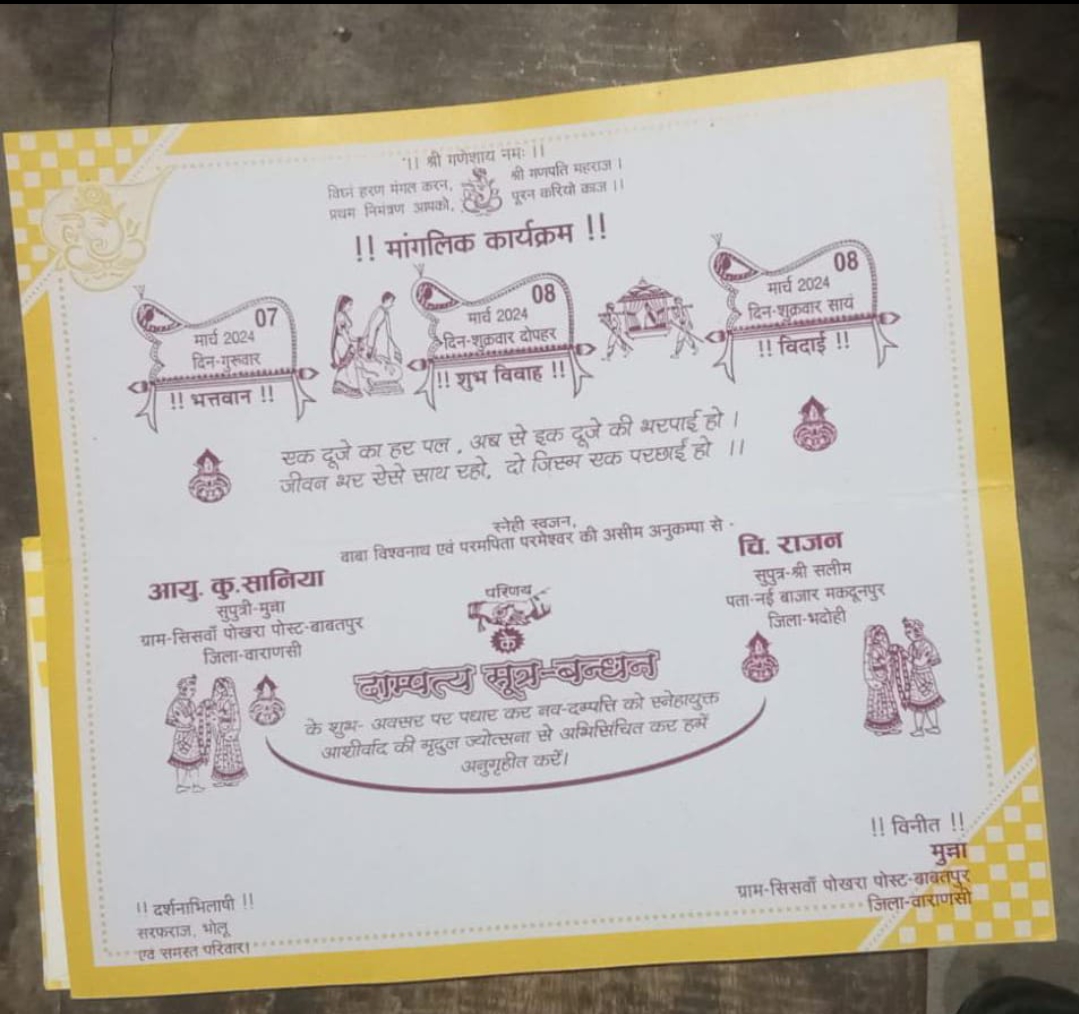 ।। श्री गणेशाय नमः ।।
विघ्नं हरण मंगल करन, श्री गणपति महराज ।
प्रथम निमंत्रण आपको, पूरन करियो काज ।।
!! मांगलिक कार्यक्रम !!
07
मार्च 2024
दिन-गुरूवार
!! भत्तवान !!
08
मार्च 2024
दिन-शुक्रवार दोपहर
!! शुभ विवाह !!
08
मार्च 2024
दिन-शुक्रवार सायं
!! विदाई !!
एक दूजे का हर पल, अब से इक दूजे की भरपाई हो ।
जीवन भर ऐसे साथ रहो, दो जिस्म एक परछाई हो ।।
स्नेही स्वजन,
बाबा विश्वनाथ एवं परमपिता परमेश्वर की असीम अनुकम्पा से -
आयु. कु.सानिया
सुपुत्री-मुन्ना
ग्राम-सिसवाँ पोखरा पोस्ट-बाबतपुर
जिला-वाराणसी
परिणय
चि. राजन
सुपुत्र-श्री सलीम
पता-नई बाजार मकदूनपुर
जिला-भदोही
दाम्पत्य सूत्र-बन्धन
के शुभ- अवसर पर पधार कर नव-दम्पत्ति को स्नेहायुक्त
आशीर्वाद की मृदुल ज्योत्सना से अभिसिंचित कर हमें
अनुगृहीत करें।
!! विनीत !!
मुन्ना
ग्राम-सिसवाँ पोखरा पोस्ट-बाबतपुर
जिला-वाराणसी
!! दर्शनाभिलाषी !!
सरफराज, भोलू
एवं समस्त परिवार।